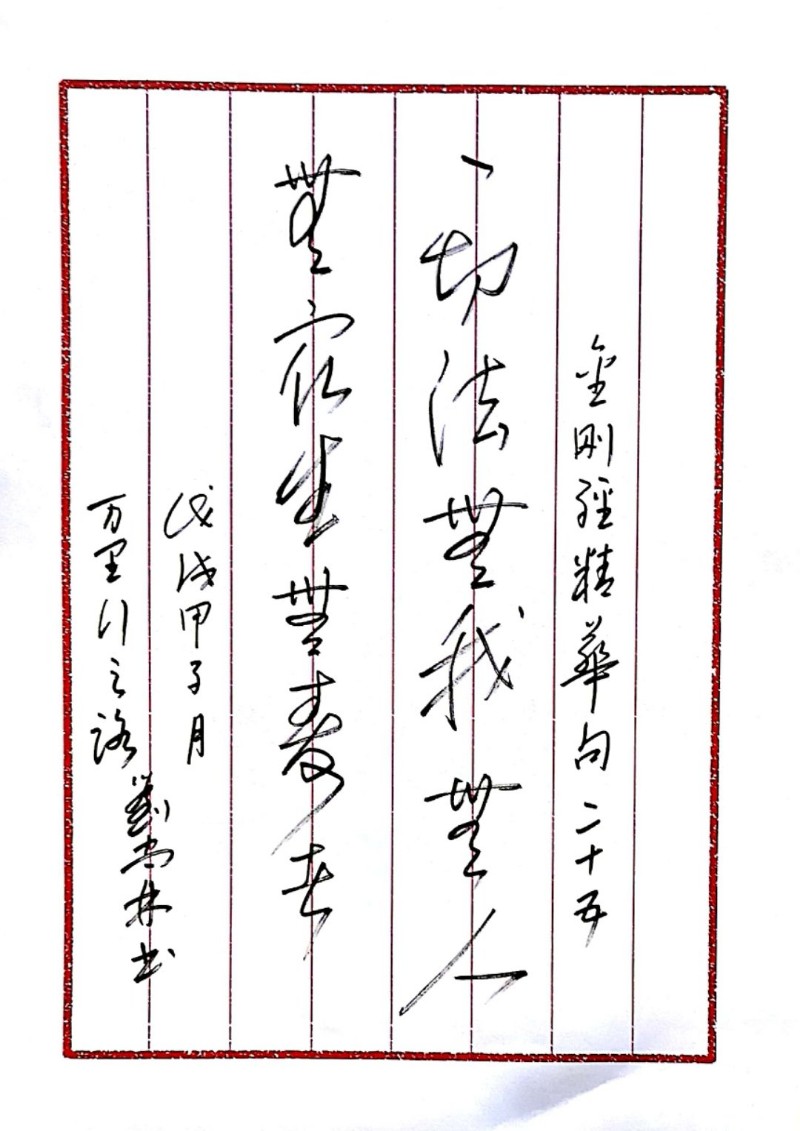 金刚經精華句二十五
一切法無我無人
無眾生無壽者
戊戌甲子月
万里行之路
劉林书